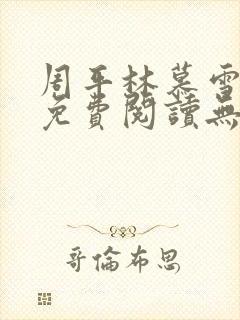 周平林慕雪
免費閱讀無
哥倫布思